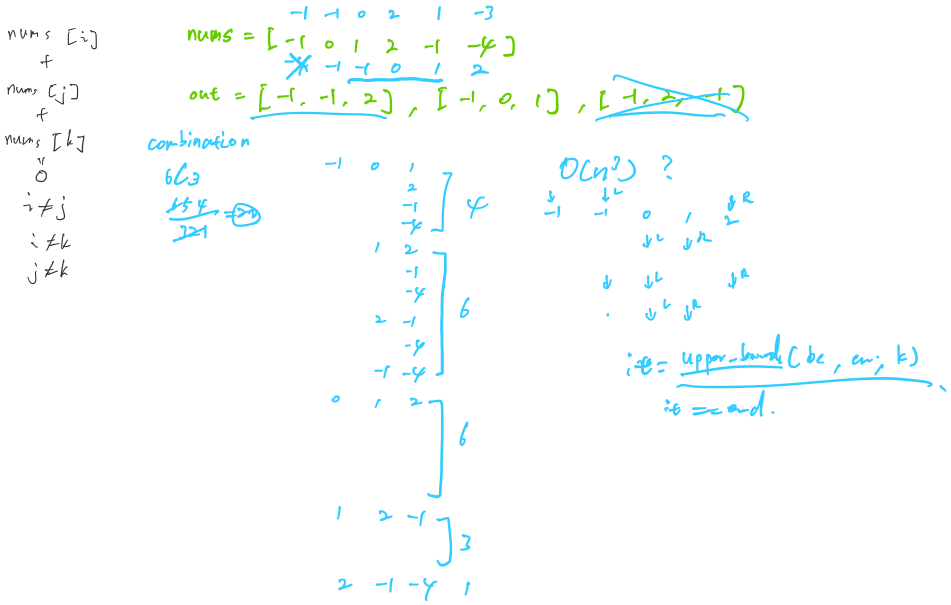 nums [i]
+
nums [j]
+
nums [k]
=
0
i ≠ j
i ≠ k
j ≠ k
-1 -1 0 2 1 -3
nums = [ -1 0 1 2 -1 -4 ]
-1 -1 0 1 2
out = [ -1, -1, 2 ] , [ -1, 0, 1 ] , [ -1, 2, -1 ]
combination
6C3
6 5 4
3 2 1
= 20
-1 0 1
2
-1
-4
4
1 2
-1
-4
2 -1
-4
-1 -4
6
0 1 2
6
1 2 -1
3
2 -1 -4 1
O(n³) ?
L R
-1 -1 0 1 2
L R
L R
L R
it = upper_bound( be , en , k )
it == end.